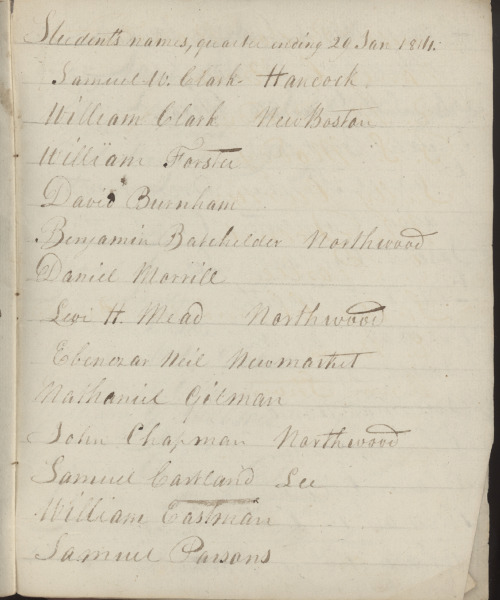 Students names, quarter ending 20 Jan 1814.
Samuel W. Clark Hancock
William Clark New Boston
William Forster
David Burnham
Benjamin Batchelder Northwood
Daniel Morrill
Levi H. Mead Northwood
Ebenezar Neil Newmarket
Nathaniel Gilman
John Chapman Northwood
Samuel Cartland Lee
William Eastman
Samuel Parsons